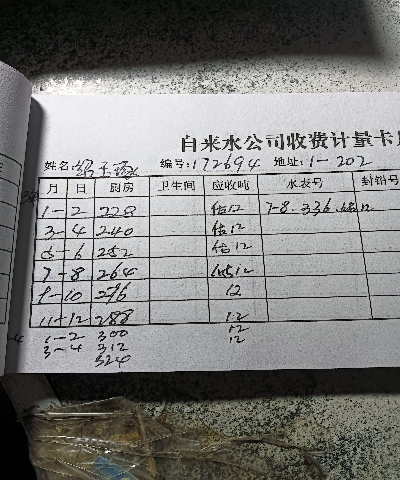 自来水公司收费计量卡
姓名: 编号:172694 地址:1-202
月 日 厨房 卫生间 应收吨 水表号 封铅号
1-2 228 估12 7-8.336.
3-4 240 估12
5-6 252 估12
7-8 264 估12
9-10 276 12
11-12 288 12
1-2 300 12
3-4 312 12
324